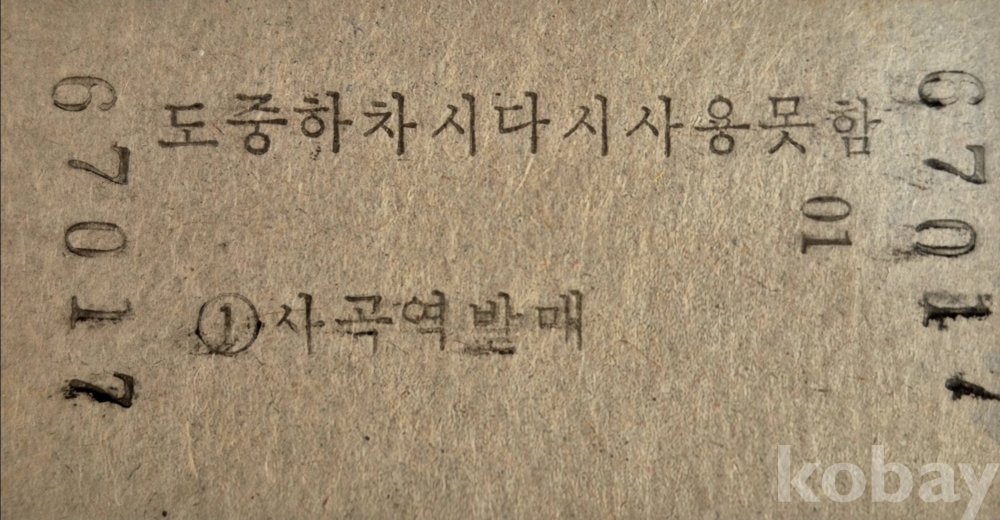 도중하차시다시사용못함
01
①사곡역발매
67017
67017
kobay